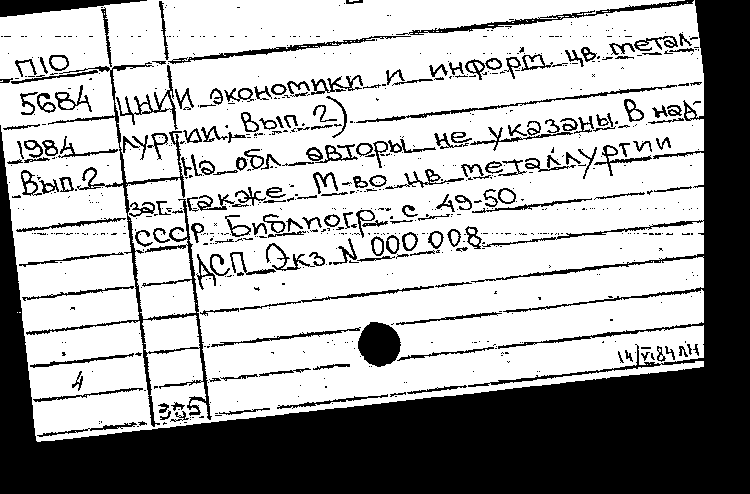 П10
5684
1984
Вып. 2
ЦНИИ экономики и информ. цв. метал-
лургии; Вып. 2)
На обл. авторы не указаны. В над-
заг. также: М-во цв. металлургии
СССР. Библиогр.: с. 49-50.
ДСП Экз. N 000 008
4
385
14/VI 84 ЛН